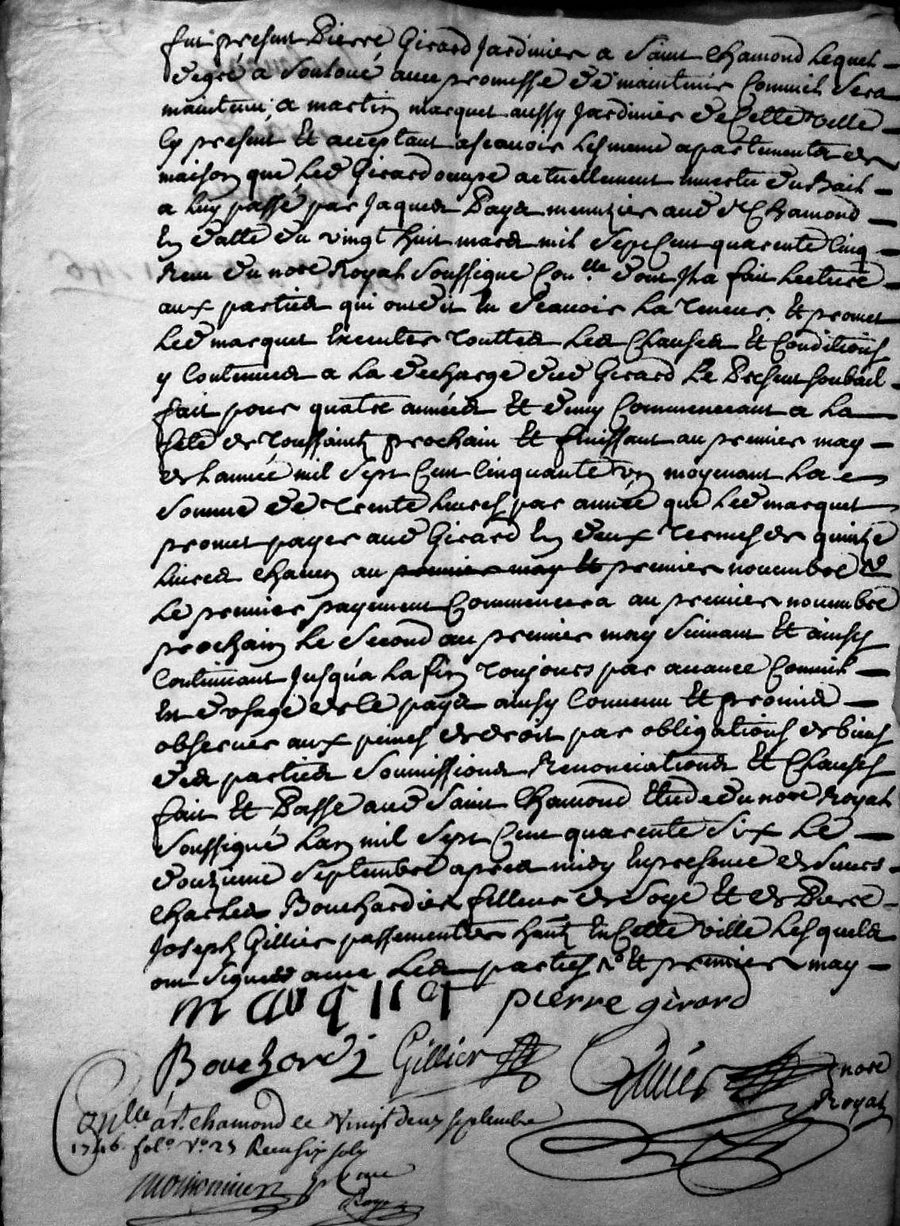 fut présent Pierre Girard Jardinier a Saint Chamond lequel
de gré a souloué avec promesse de maintenir comme il sera
maintenu a martin marquet aussy Jardinier de cette ville
Cy présent Et acceptant ascauoir les meme apartements de
maison que led Girard occupe actuellement en vertu du bail
a luy passé par Jaques Paya menuzier aud St Chamond
En datte du vingt huit mars mil sept cent quarente cinq
Receu du nore Royal soussigné Con.lle dont Il a fait lecture
aux parties qui ont dit En scauoir la teneur, Et promet
led marquet Executer touttes les Clauses Et Conditions
y Contenues a la decharge dud Girard Le present soubail
fait pour quatre années Et demy Commencant a la
fete de toussaint prochain Et finissant au premier may
de l'année mil sept Cent Cinquante un moyenant la
somme de trente liures par année que led marquet
promet payer aud Girard En deux termes de quinze
liures chacun au premier may Et premier novembre
Le premier payement Commencera au premier novembre
prochain Le second au premier may suiuant Et ainsy
Continuant jusqu'a la fin toujours par auance Comme il
Est d'usage de ce pays ainsy Conuenu Et promis
obseruer aux peines de droit par obligations de biens
des parties soumissions Renonciations Et Clauses
fait Et Passé aud Saint Chamond Etude du nore Royal
soussigné Lan mil sept Cent quarente six Le
douzieme septembre apres midy En presence de sieurs
Charles Bouchardier filleur de soye Et de Pierre
Joseph Gillier passementier habts En Cette ville Lesquels
ont signes auec Les parties Et premier may
marquet pierre girard
Bouchardi Gillier nore
Royal
Con.lle a St. chamond ce vingt deux septembre
1746. fol.o v.o 23 Receu six sols